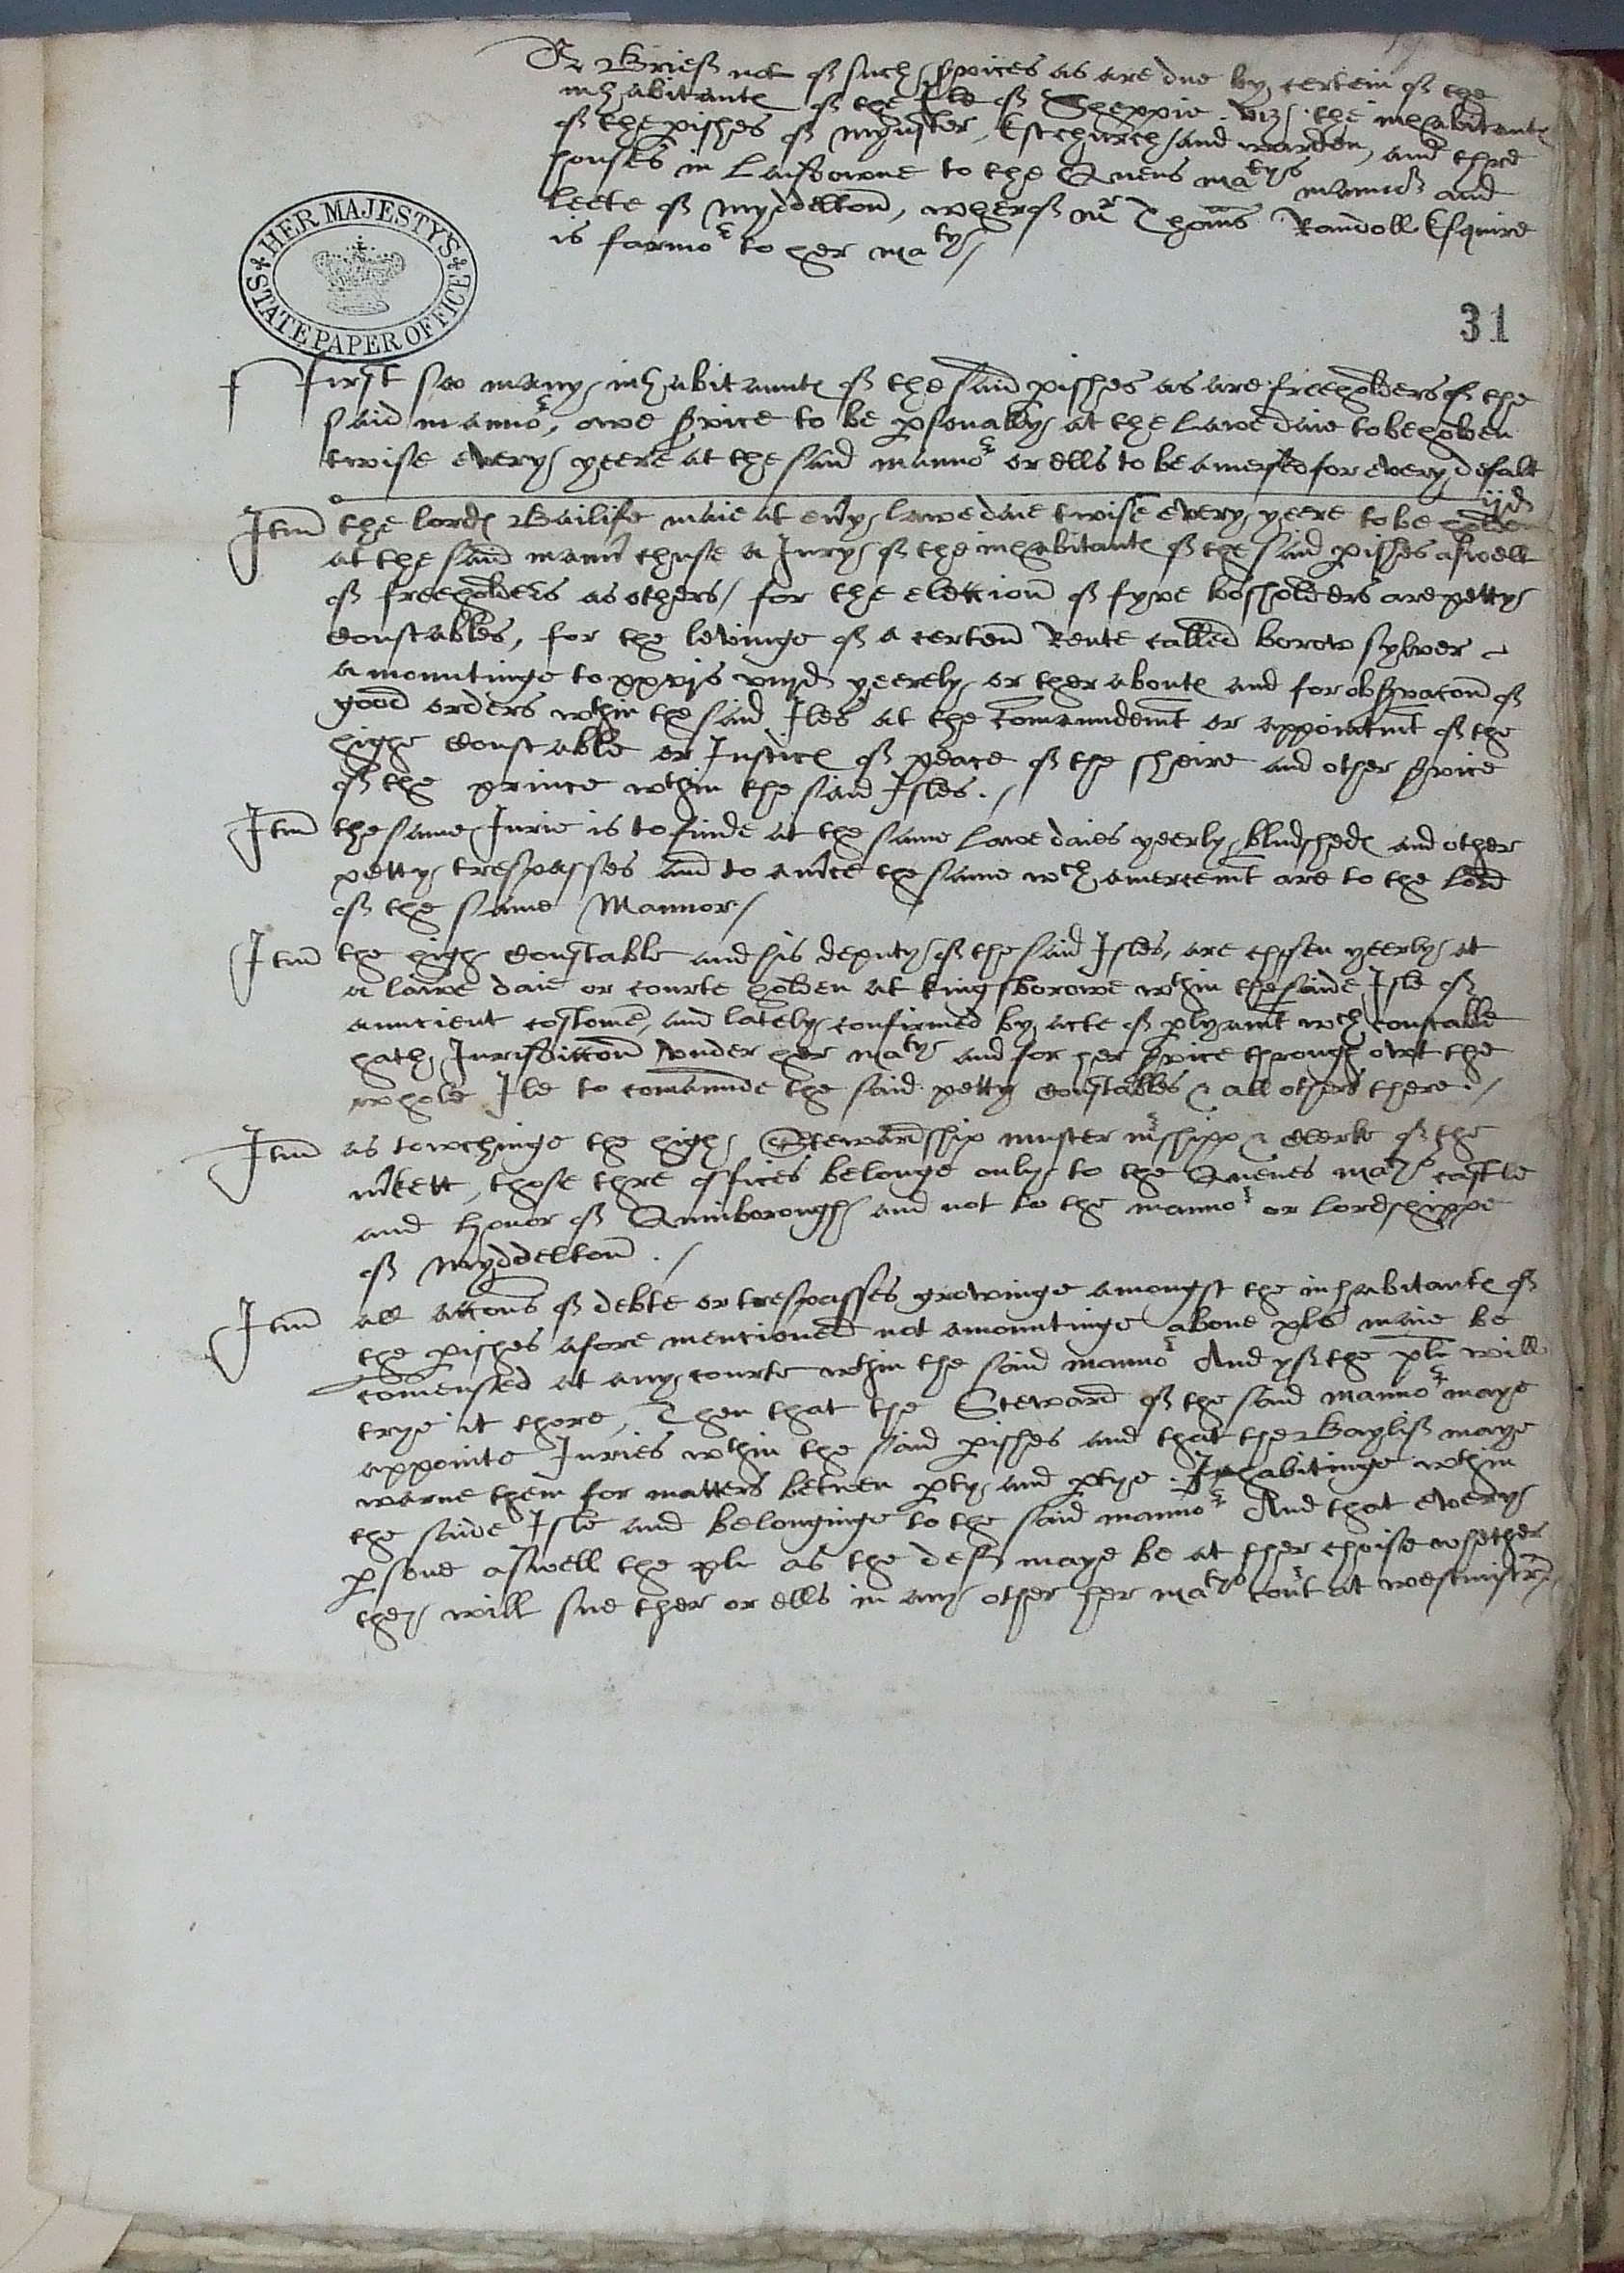 A Brief not of such svices as are due by certein of the
inhabitantℯ of the Ile of Sheppie. viz. the inhabitantℯ
of the pishes of Mynster, Estchurch and warden, and thre
houses in Laisdowne to the Quens matys mannor and
leete of Myddelton, wherof Mr Thomas Randoll Esquire
is farmor to her maty /
HER MAJESTY'S
STATE PAPER OFFICE
31
First soo many inhabitauntℯ of the said pishes as are freeholders of the
said mannor, owe svice to be psonally at the Lawe daie to be holden
twise every yeere at the said mannor or ells to be amersed for every defalt
ijd
Itm the lordℯ Bailife maie at evy lawe daie twise every yeere to be holden
at the said mannr chuse a Jury of the inhabitantℯ of the said pishes aswell
of freeholders as others / for the elettion of fyve bosholders are petty
Constables, for the levinge of a certen Rente called borow sylver
amountinge to xxvjs viijd yeerely or ther aboutℯ and for obsvacon of
good orders wthin the said Iles at the comaundemt or appointmt of the
highe Constable or Justicℯ of peace of the sheire and other svice
of the prince wthin the said Isles. /
Itm the same Jurie is to finde at the same Lawe daies yeerly, bludshedℯ and other
petty trespasses and to amce the same wch amercemt are to the Lord
of the same Mannor /
Itm the high Constable and his deputy of the said Isles, are chosen yeerly at
a lawe daie or courte holden at kingsborowe wthin the saide Isle of
auncient costome, and lately confirmed by acte of plyamt wch constable
hath Jurisdittion under her maty and for her svice through owt the
whole Ile to comaunde the said petty Constables & all others there. /
Itm as towchinge the high Stewardship muster mrshipp & Clerke of the
mkett, those thre offices belonge only to the Quenes matys castle
and Honor of Quinborough and not to the mannor or Lordshippe
of Myddelton. /
Itm all accons of debte or trespasses growinge amongst the inhabitantℯ of
the pishes afore mencioned not amountinge above xls maie be
comensed at any courte wthin the said mannor And yf the pltr will
trye it there, Then that the Steward of the said mannor maye
appointe Juries wthin the said pishes and that the Baylif maye
warne them for matters betwen pty and ptye Inhabitinge wthin
the saide Isle and belonginge to the said mannor And that every
psone aswell the plr as the def maye be at ther choise whether
they will sue ther or ells in any other her matys court at westmistr.